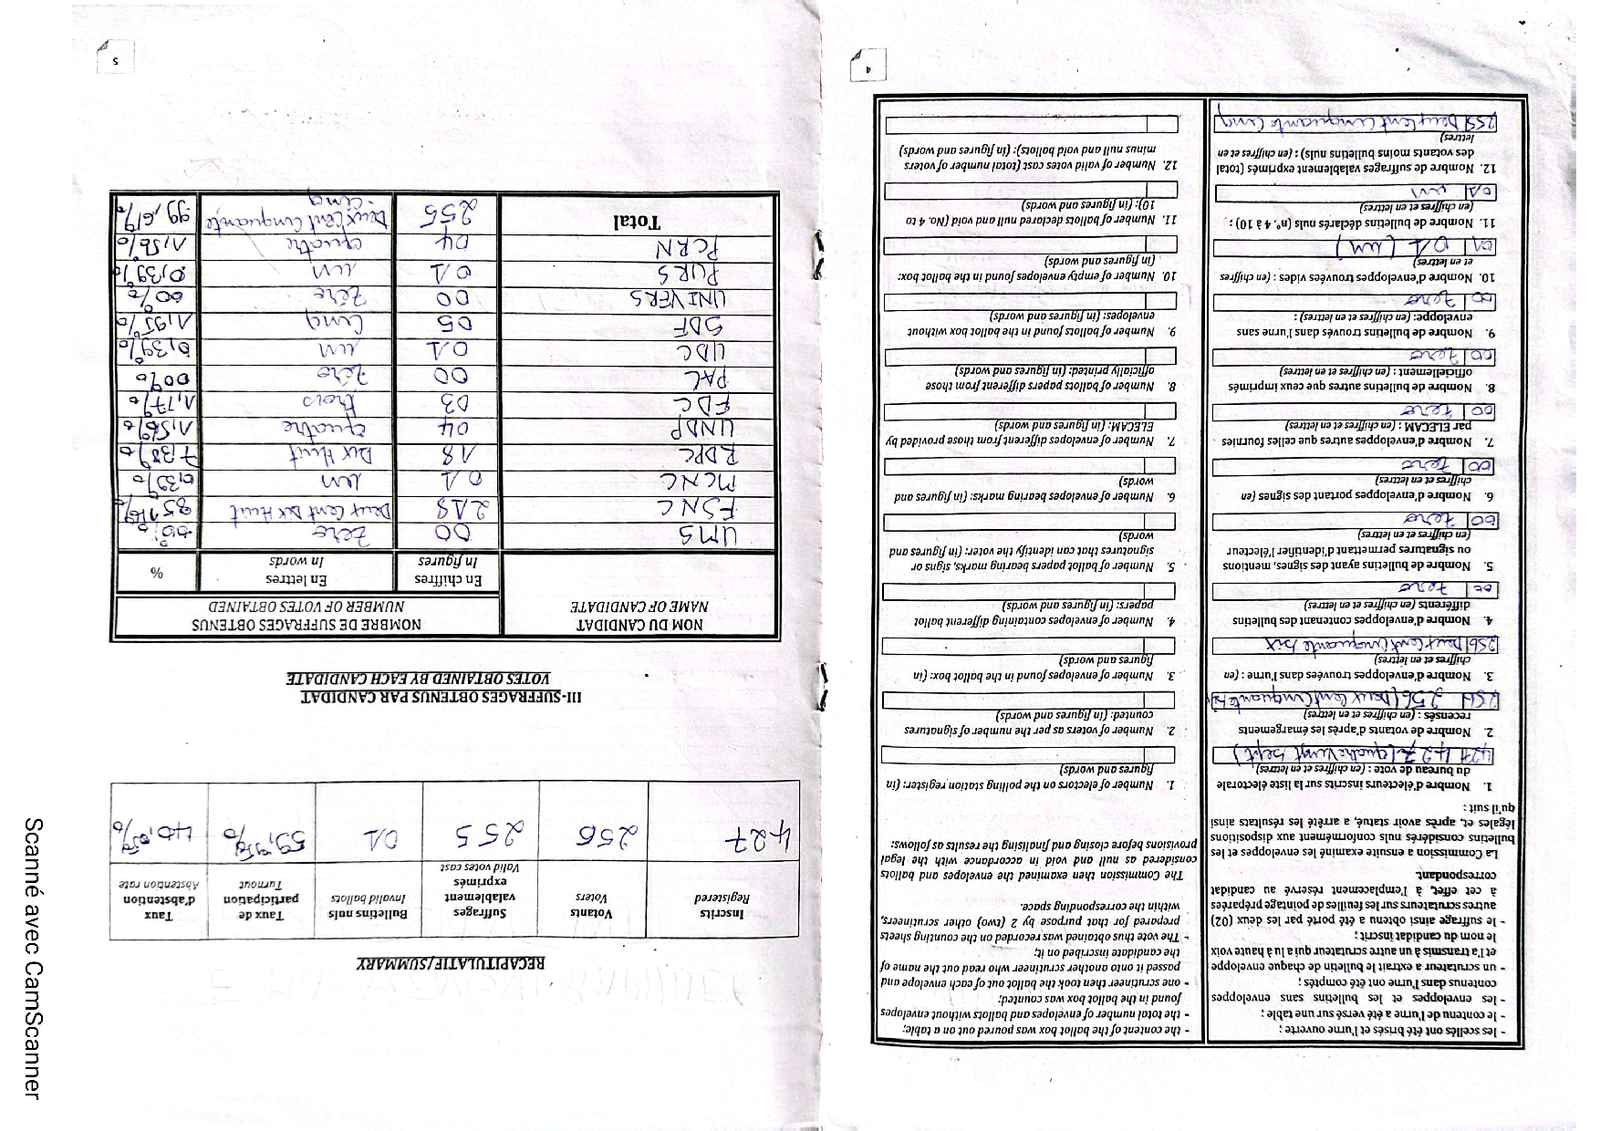 - les scellés ont été brisés et l'urne ouverte ;
- le contenu de l'urne a été versé sur une table ;
- les enveloppes et les bulletins sans enveloppes
contenus dans l'urne ont été comptés ;
- un scrutateur a extrait le bulletin de chaque enveloppe
et l'a transmis à un autre scrutateur qui a lu à haute voix
le nom du candidat inscrit ;
- le suffrage ainsi obtenu a été porté par les deux (02)
autres scrutateurs sur les feuilles de pointage préparées
à cet effet, à l'emplacement réservé au candidat
correspondant.
La Commission a ensuite examiné les enveloppes et les
bulletins considérés nuls conformément aux dispositions
légales et, après avoir statué, a arrêté les résultats ainsi
qu'il suit :
1. Nombre d'électeurs inscrits sur la liste électorale
du bureau de vote : (en chiffres et en lettres)
427 427 (quatre Vingt Sept)
2. Nombre de votants d'après les émargements
recensés : (en chiffres et en lettres)
256 256 (Deux Cent Cinquante six
3. Nombre d'enveloppes trouvées dans l'urne : (en
chiffres et en lettres)
256 Deux Cent Cinquante Six
4. Nombre d'enveloppes contenant des bulletins
différents (en chiffres et en lettres)
00 Zero
5. Nombre de bulletins ayant des signes, mentions
ou signatures permettant d'identifier l'électeur
(en chiffres et en lettres)
00 Zero
6. Nombre d'enveloppes portant des signes (en
chiffres et en lettres)
00 Zero
7. Nombre d'enveloppes autres que celles fournies
par ELECAM : (en chiffres et en lettres)
00 Zero
8. Nombre de bulletins autres que ceux imprimés
officiellement : (en chiffres et en lettres)
00 Zero
9. Nombre de bulletins trouvés dans l'urne sans
enveloppe: (en chiffres et en lettres) :
00 Zero
10. Nombre d'enveloppes trouvées vides : (en chiffres
et en lettres)
01 01 (un)
11. Nombre de bulletins déclarés nuls (n°. 4 à 10) :
(en chiffres et en lettres)
01 un
12. Nombre de suffrages valablement exprimés (total
des votants moins bulletins nuls) : (en chiffres et en
lettres)
255 Deux Cent Cinquante Cinq
- the content of the ballot box was poured out on a table;
- the total number of envelopes and ballots without envelopes
found in the ballot box was counted;
- one scrutineer then took the ballot out of each envelope and
passed it onto another scrutineer who read out the name of
the candidate inscribed on it;
- The vote thus obtained was recorded on the counting sheets
prepared for that purpose by 2 (two) other scrutineers,
within the corresponding space.
The Commission then examined the envelopes and ballots
considered as null and void in accordance with the legal
provisions before closing and finalising the results as follows:
1. Number of electors on the polling station register: (in
figures and words)
2. Number of voters as per the number of signatures
counted: (in figures and words)
3. Number of envelopes found in the ballot box: (in
figures and words)
4. Number of envelopes containing different ballot
papers: (in figures and words)
5. Number of ballot papers bearing marks, signs or
signatures that can identify the voter: (in figures and
words)
6. Number of envelopes bearing marks: (in figures and
words)
7. Number of envelopes different from those provided by
ELECAM: (in figures and words)
8. Number of ballots papers different from those
officially printed: (in figures and words)
9. Number of ballots found in the ballot box without
envelopes: (in figures and words)
10. Number of empty envelopes found in the ballot box:
(in figures and words)
11. Number of ballots declared null and void (No. 4 to
10): (in figures and words)
12. Number of valid votes cast (total number of voters
minus null and void ballots): (in figures and words)
4
RECAPITULATIF/SUMMARY
Inscrits Registered
Votants Voters
Suffrages valablement exprimés Valid votes cast
Bulletins nuls Invalid ballots
Taux de participation Turnout
Taux d'abstention Abstention rate
427 256 255 01 59,95% 40,05%
III-SUFFRAGES OBTENUS PAR CANDIDAT
VOTES OBTAINED BY EACH CANDIDATE
NOM DU CANDIDAT NOMBRE DE SUFFRAGES OBTENUS
NAME OF CANDIDATE NUMBER OF VOTES OBTAINED
En chiffres En lettres %
In figures In words
UMS 00 Zéro 00%
FSNC 218 Deux Cent Dix Huit
MCNC 01 un 0,39%
RDPC 18 Dix Huit 7,38%
UNDP 04 quatre 1,56%
FDC 03 trois 1,17%
PAL 00 Zéro 00%
UDC 01 un 0,39%
SDF 05 Cinq 1,95%
UNIVERS 00 Zéro 00%
PURS 01 un 0,39%
PCRN 04 quatre 1,56%
Total 255 Deux Cent Cinquante 99,61%
- Cinq
5
Scanné avec CamScanner